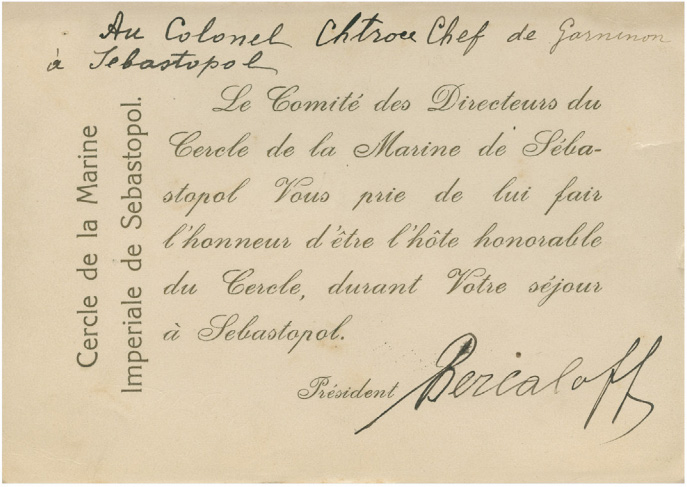 Au Colonel Chtrou Chef de Garninon
à Sebastopol
Cercle de la Marine
Imperiale de Sebastopol.
Le Comité des Directeurs du
Cercle de la Marine de Séba-
stopol Vous prie de lui fair
l'honneur d'être l'hôte honorable
du Cercle, durant Votre séjour
à Sebastopol.
Président Bercaloff